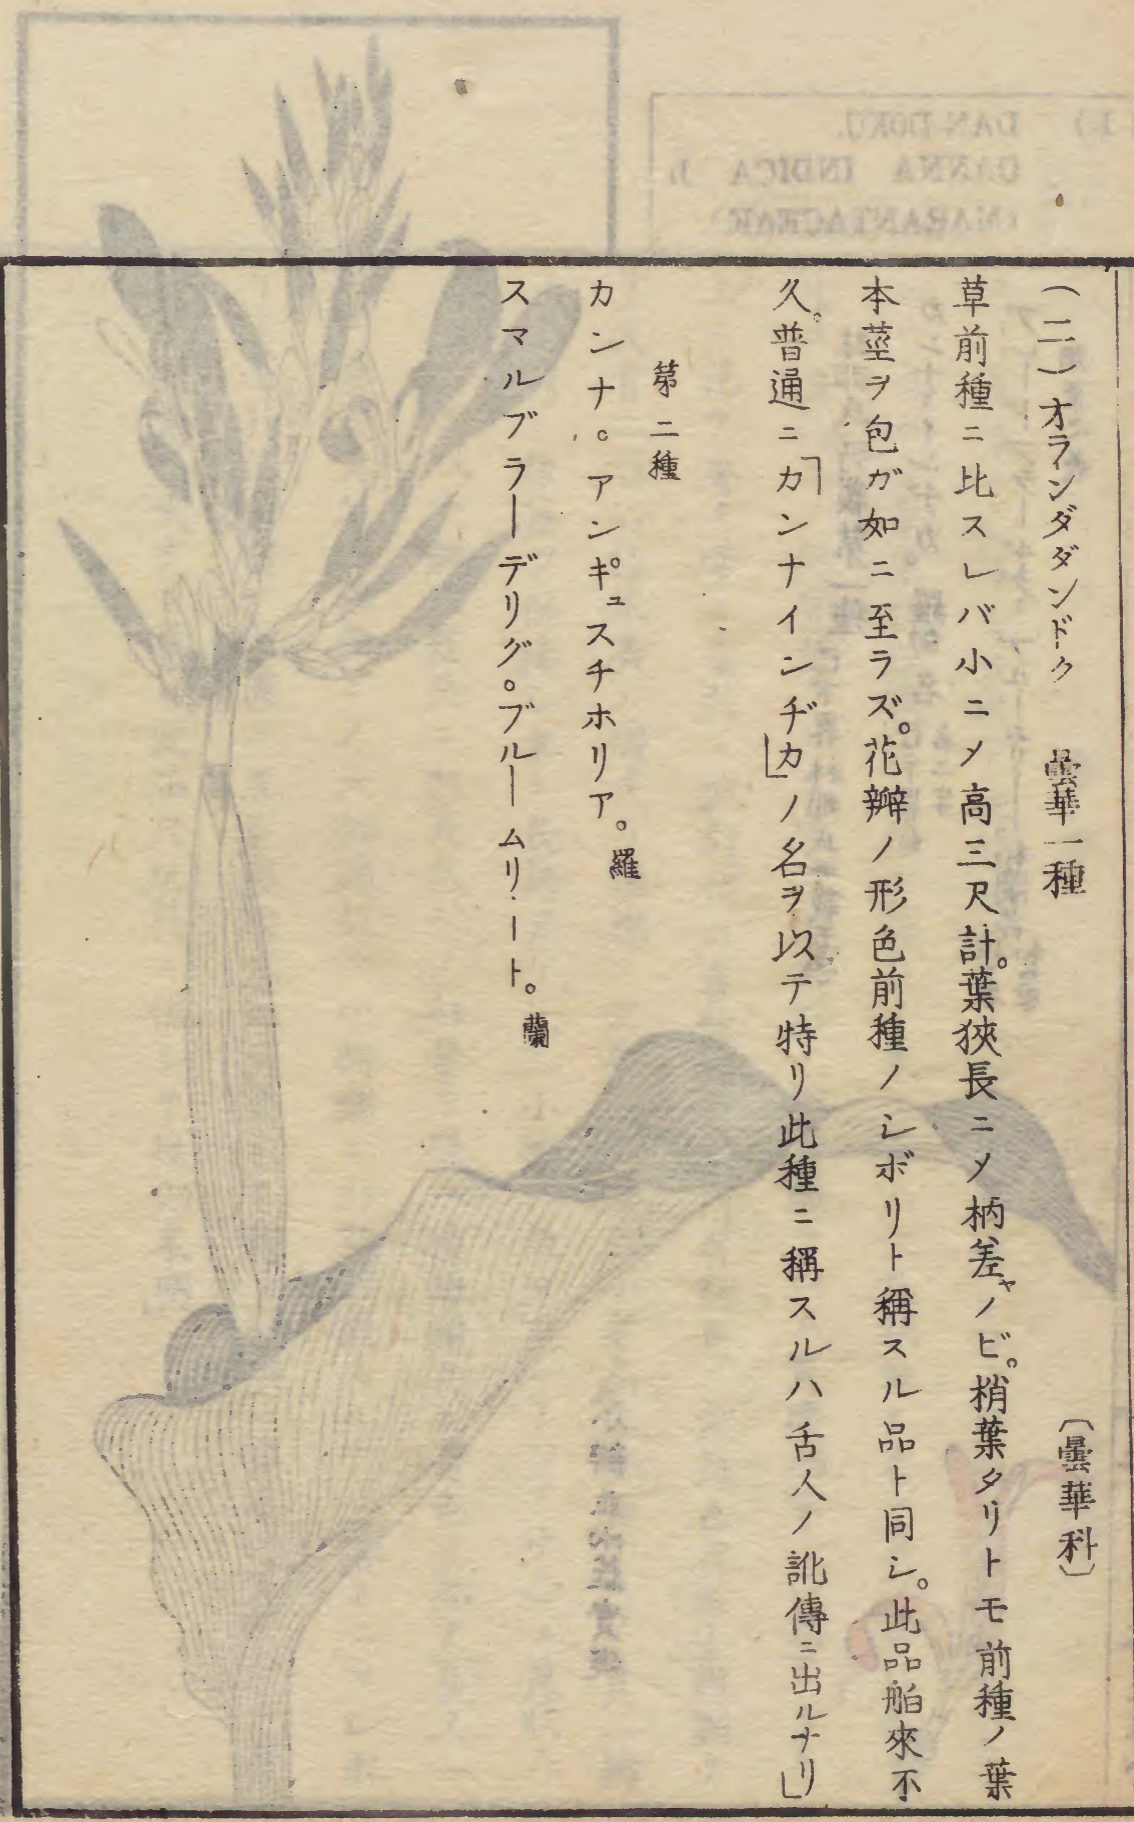 (二)オランダダンドク 曇華一種 〔曇華科〕
草前種ニ比スレバ小ニメ高三尺計。葉狹長ニメ柄差ヤノビ。梢葉タリトモ前種ノ葉
本莖ヲ包ガ如ニ至ラズ。花瓣ノ形色前種ノシボリト稱スル品ト同シ。此品舶來不
久。普通ニ「カンナインヂカ」ノ名ヲ以テ特リ此種ニ稱スルハ舌人ノ訛傳ニ出ルナリ」
第二種
カンナ。アンギュスチホリア。羅
スマルブラーデリグ。ブルームリート。蘭
DAN-DOKU.
CANNA INDICA L.
(MARANTACEAE)